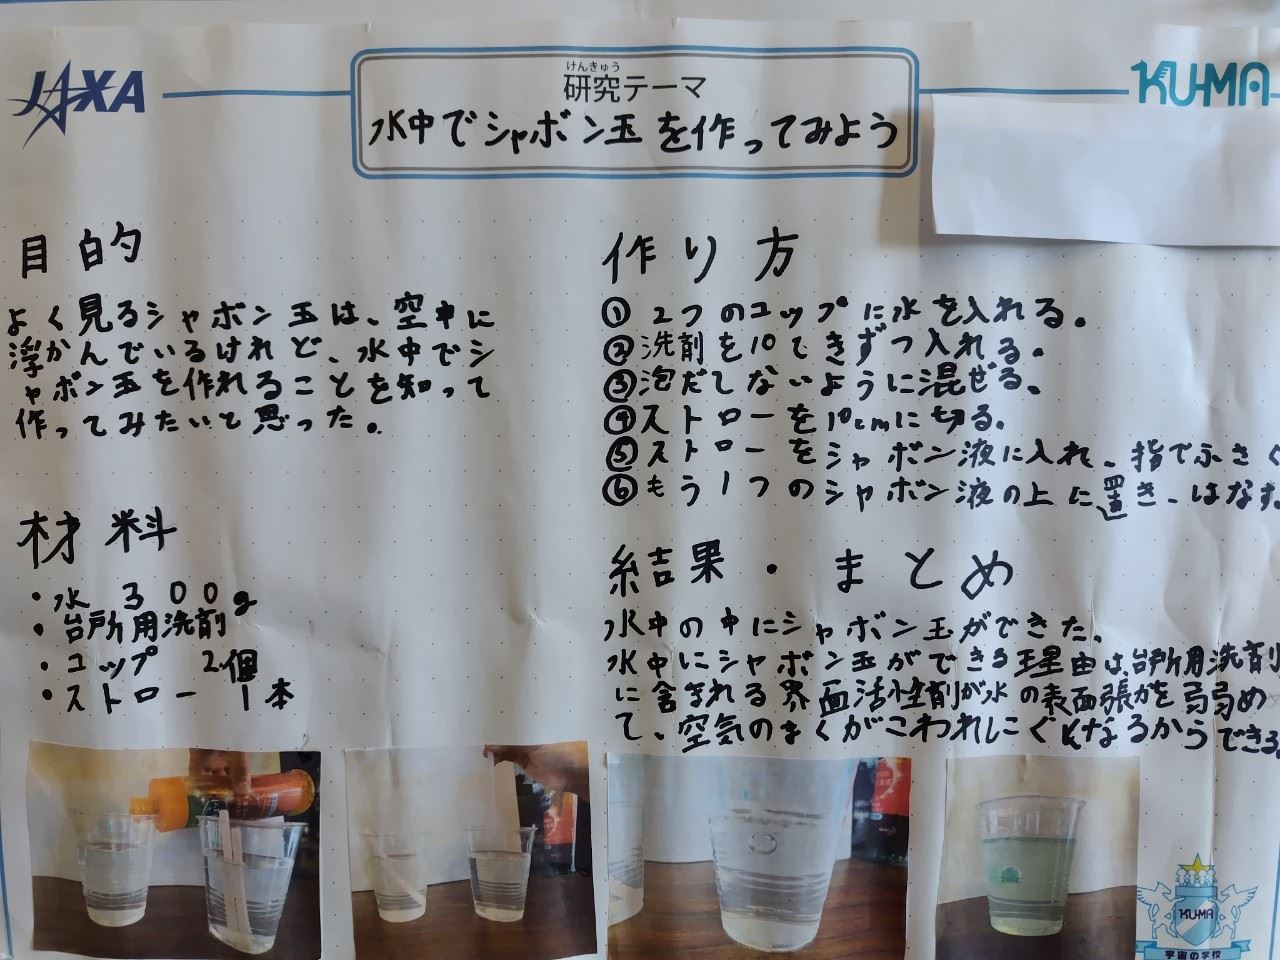 JAXA
KU-MA
けんきゅう
研究テーマ
水中でシャボン玉を作ってみよう
目的
よく見るシャボン玉は、空中に
浮かんでいるけれど、水中でシ
ャボン玉を作れることを知って
作ってみたいと思った。
材料
・水 300g
・台所用洗剤
・コップ 2個
・ストロー 1本
作り方
①2つのコップに水を入れる。
②洗剤を10てきずつ入れる。
③泡だてしないように混ぜる。
④ストローを10cmに切る。
⑤ストローをシャボン液に入れ、指でふさく
⑥もう1つのシャボン液の上に置き、はなす
結果・まとめ
水中の中にシャボン玉ができた。
水中にシャボン玉ができる理由は、台所用洗剤
に含まれる界面活性剤が水の表面張力を弱め
て、空気のまくがこわれにくくなるからできる
KU-MA
宇宙の学校